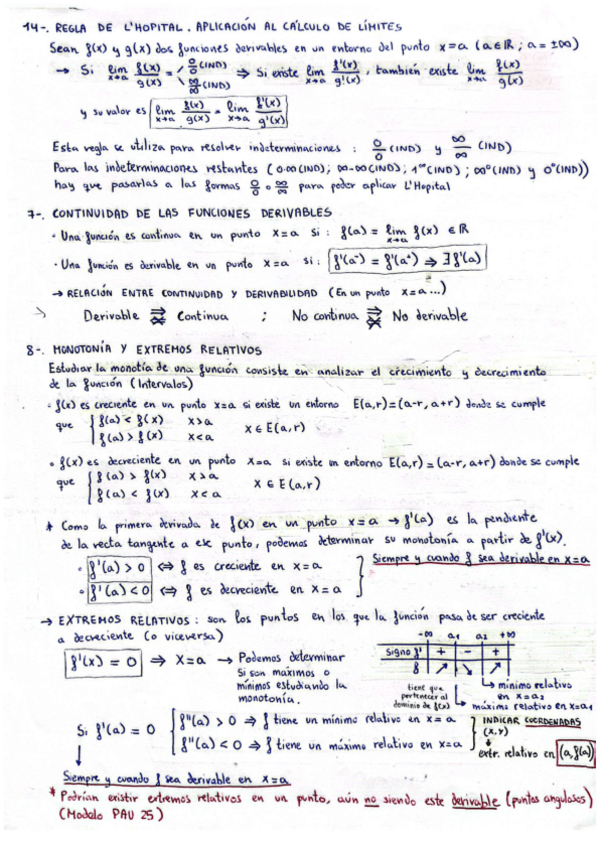 14-. REGLA DE L'HOPITAL. APLICACIÓN AL CÁLCULO DE LÍMITES
Sean f(x) y g(x) dos funciones derivables en un entorno del punto x=a (a∈ℝ ; a=±∞)
→ Si lim x→a f(x)/g(x) = 0/0 (IND) ∞/∞ (IND) ⇒ Si existe lim x→a f'(x)/g'(x), también existe lim x→a f(x)/g(x)
y su valor es lim x→a f(x)/g(x) = lim x→a f'(x)/g'(x)
Esta regla se utiliza para resolver indeterminaciones : 0/0 (IND) y ∞/∞ (IND)
Para las indeterminaciones restantes (0·∞(IND); ∞-∞(IND); 1^∞(IND); ∞⁰(IND) y 0⁰(IND))
hay que pasarlas a las formas 0/0 o ∞/∞ para poder aplicar L'Hopital
7-. CONTINUIDAD DE LAS FUNCIONES DERIVABLES
· Una función es continua en un punto x=a si : f(a) = lim x→a f(x) ∈ℝ
· Una función es derivable en un punto x=a si : f'(a⁻) = f'(a⁺) ⇒ ∃f'(a)
→ RELACIÓN ENTRE CONTINUIDAD Y DERIVABILIDAD (En un punto x=a...)
Derivable ⇒ ⇍ Continua ; No continua ⇒ ⇍ No derivable
8-. MONOTONÍA Y EXTREMOS RELATIVOS
Estudiar la monotía de una función consiste en analizar el crecimiento y decrecimiento
de la función (Intervalos)
· f(x) es creciente en un punto x=a si existe un entorno E(a,r)=(a-r, a+r) donde se cumple
que { f(a) < f(x) x>a
f(a) > f(x) x<a x∈E(a,r)
· f(x) es decreciente en un punto x=a si existe un entorno E(a,r)=(a-r, a+r) donde se cumple
que { f(a) > f(x) x>a
f(a) < f(x) x<a x∈E(a,r)
* Como la primera derivada de f(x) en un punto x=a → f'(a) es la pendiente
de la recta tangente a ese punto, podemos determinar su monotonía a partir de f'(x).
· f'(a) > 0 ⇔ f es creciente en x=a
· f'(a) < 0 ⇔ f es decreciente en x=a
Siempre y cuando f sea derivable en x=a
→ EXTREMOS RELATIVOS : son los puntos en los que la función pasa de ser creciente
a decreciente (o viceversa)
f'(x) = 0 ⇒ x=a → Podemos determinar
si son máximos o
mínimos estudiando la
monotonía.
-∞ a₁ a₂ +∞
signo f' + - +
f ↗ ↘ ↗
tiene que
pertenecer al
dominio de f(x)
mínimo relativo
en x=a₂
máximo relativo en x=a₁
Si f'(a) = 0 { f''(a) > 0 ⇒ f tiene un mínimo relativo en x=a
f''(a) < 0 ⇒ f tiene un máximo relativo en x=a
INDICAR COORDENADAS
(x,y)
extr. relativo en (a, f(a))
Siempre y cuando f sea derivable en x=a
* Podrían existir extremos relativos en un punto, aún no siendo este derivable (puntos angulosos)
(Modelo PAU 25)